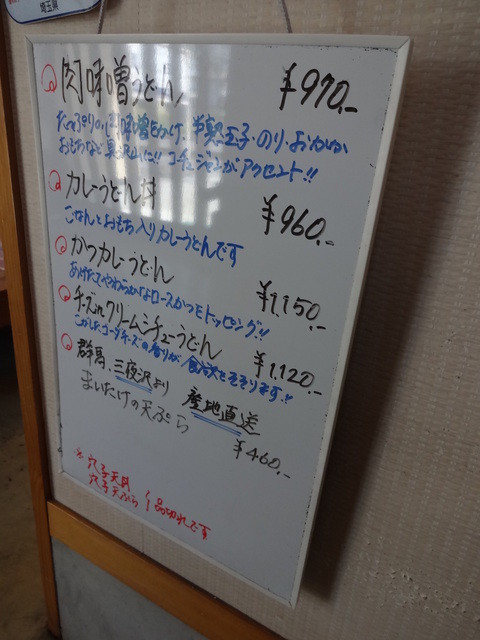 埼玉県
肉味噌うどん ¥970.-
たっぷりの肉味噌をかけ、半熟玉子・のり・おかか
おもちなど具沢山に!! コーチュジャンがアクセント!!
カレーうどん丼 ¥960.-
ごはんとおもち入りカレーうどんです
かつカレーうどん ¥1,150.-
あげたてやわらかなロースかつをトッピング!!
チーズinクリームシチューうどん ¥1,120.-
こがしたゴーダチーズの香りが食欲をそそります!!
群馬、三夜沢より 産地直送
まいたけの天ぷら ¥460.-
※穴子天丼
穴子天ぷら 品切れです